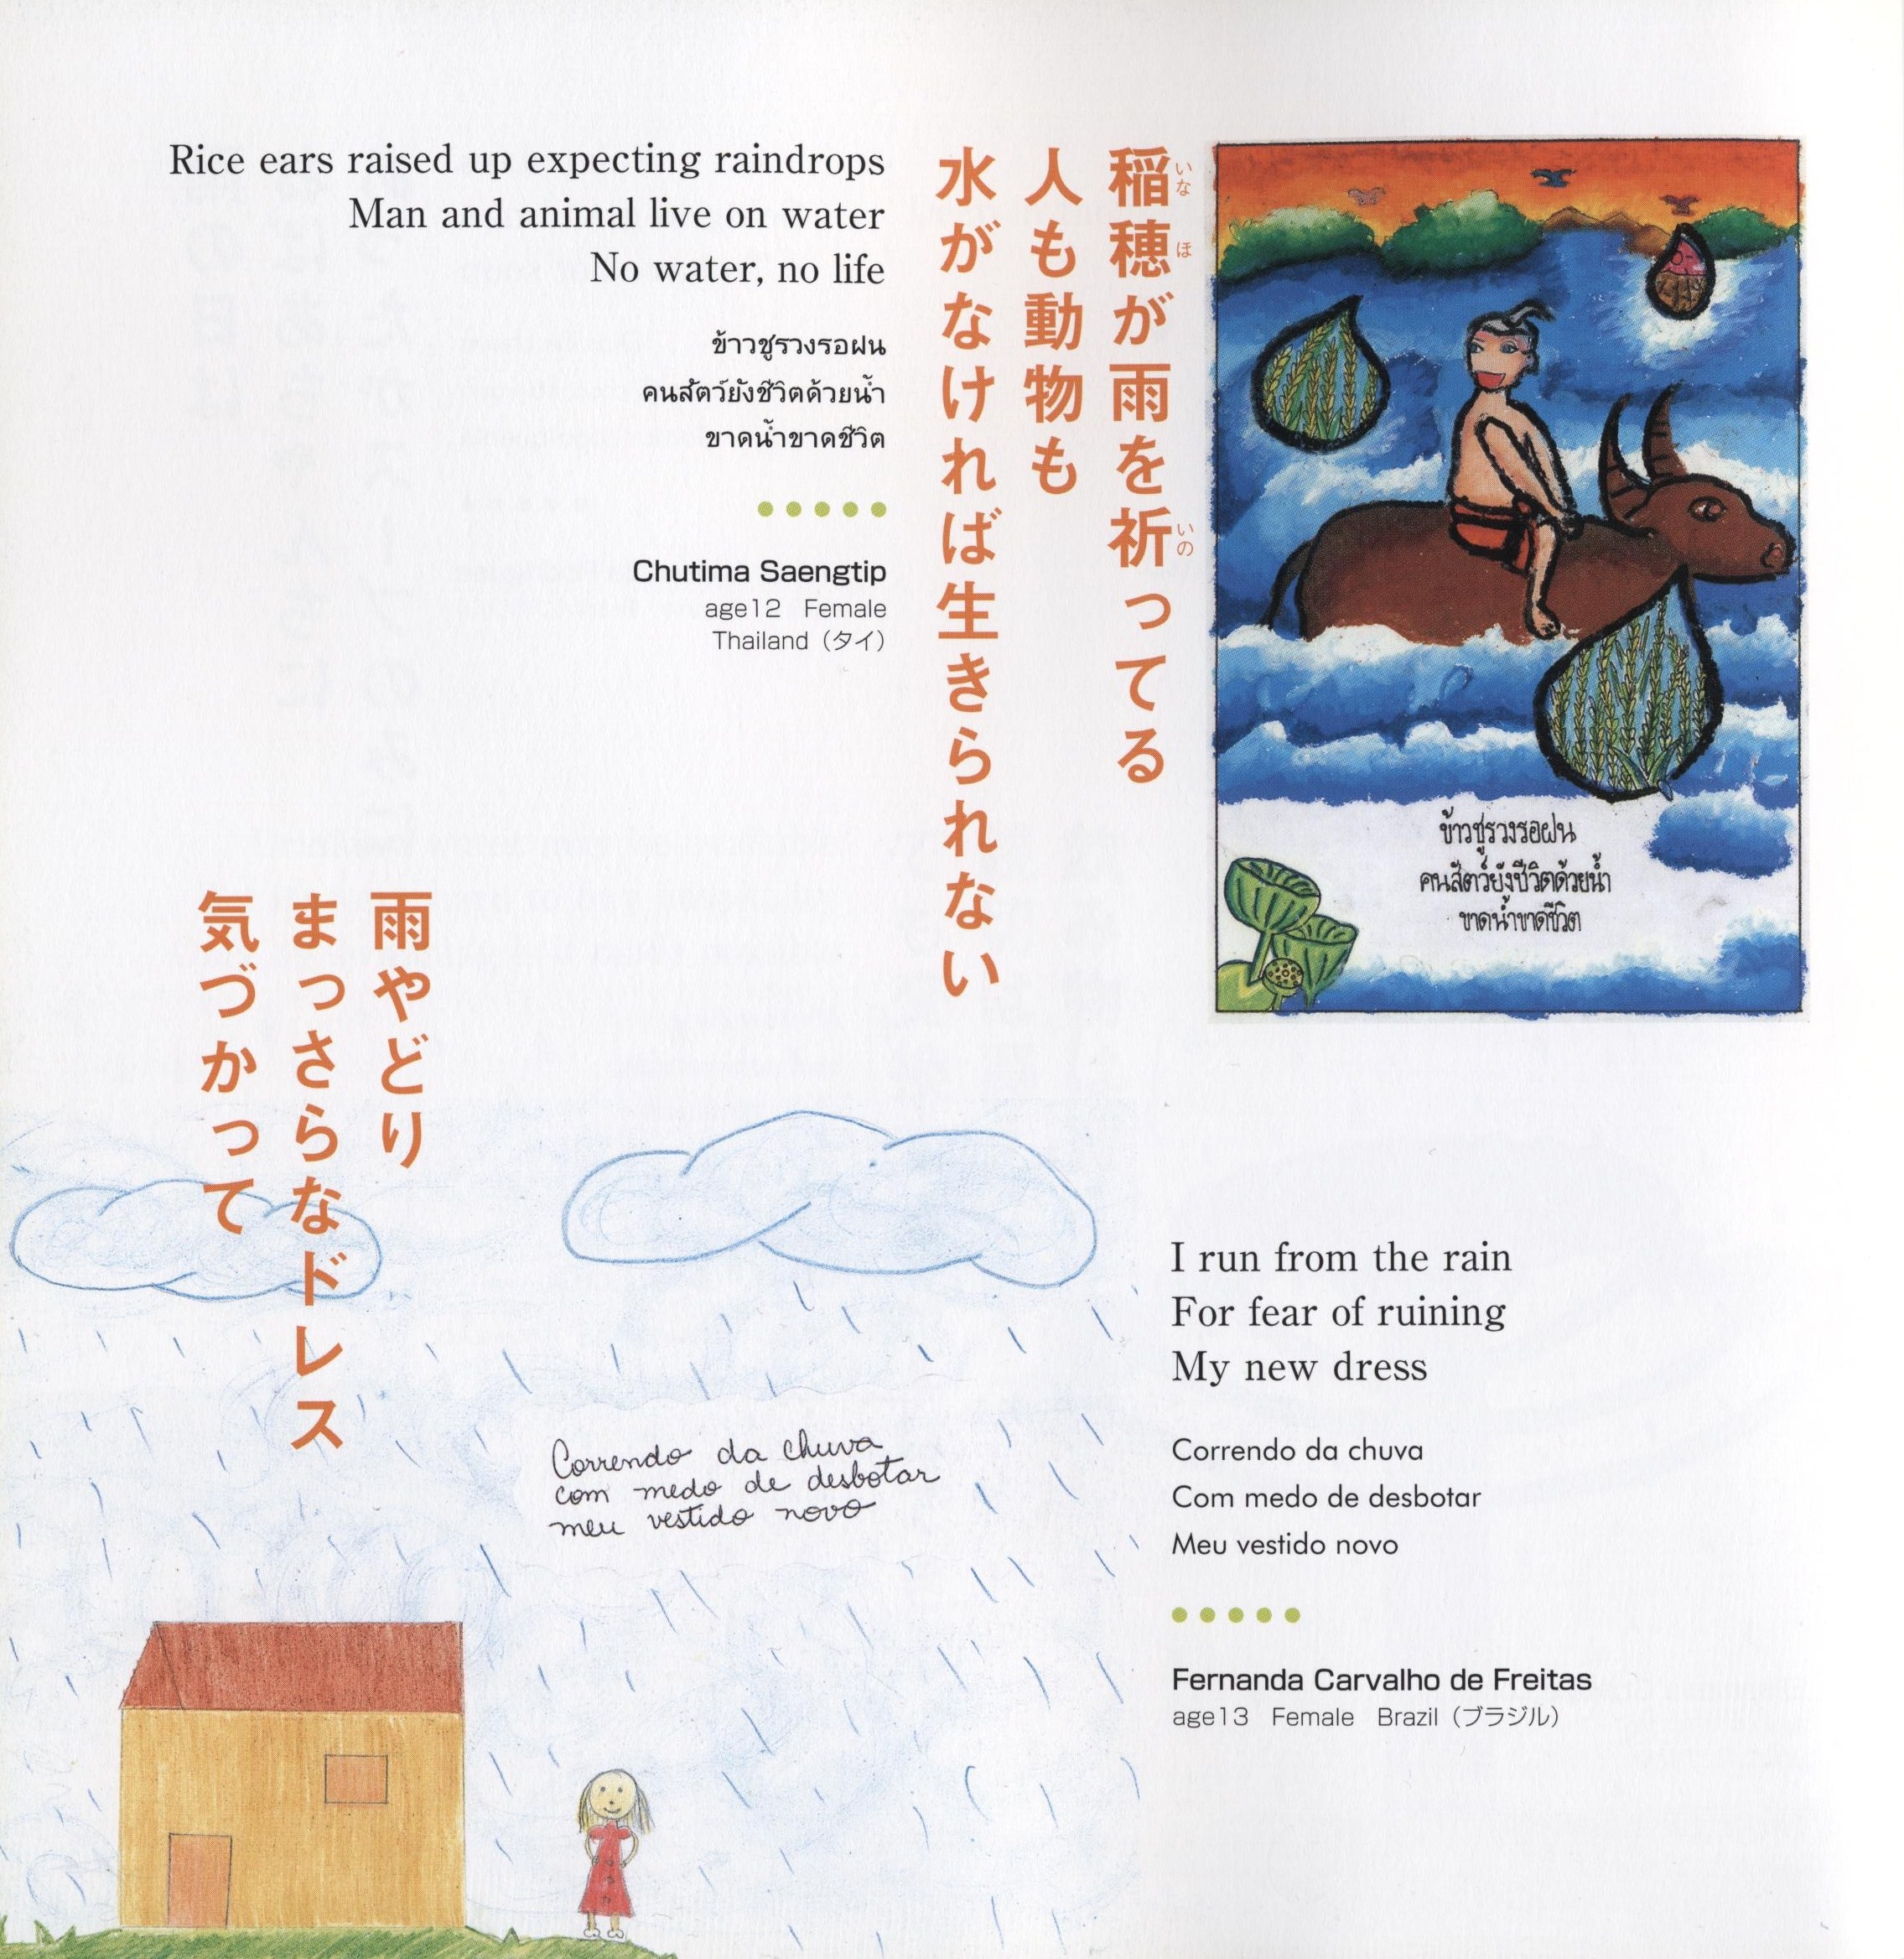 Rice ears raised up expecting raindrops
Man and animal live on water
No water, no life
ข้าวชูรวงรอฝน
คนสัตว์ยังชีวิตด้วยน้ำ
ขาดน้ำขาดชีวิต
Chutima Saengtip
age12 Female
Thailand（タイ）
稲穂が雨を祈ってる
いなほ
いの
人も動物も
水がなければ生きられない
ข้าวชูรวงรอฝน
คนสัตว์ยังชีวิตด้วยน้ำ
ขาดน้ำขาดชีวิต
雨やどり
まっさらなドレス
気づかって
Correndo da chuva
com medo de desbotar
meu vestido novo
I run from the rain
For fear of ruining
My new dress
Correndo da chuva
Com medo de desbotar
Meu vestido novo
Fernanda Carvalho de Freitas
age13 Female Brazil（ブラジル）